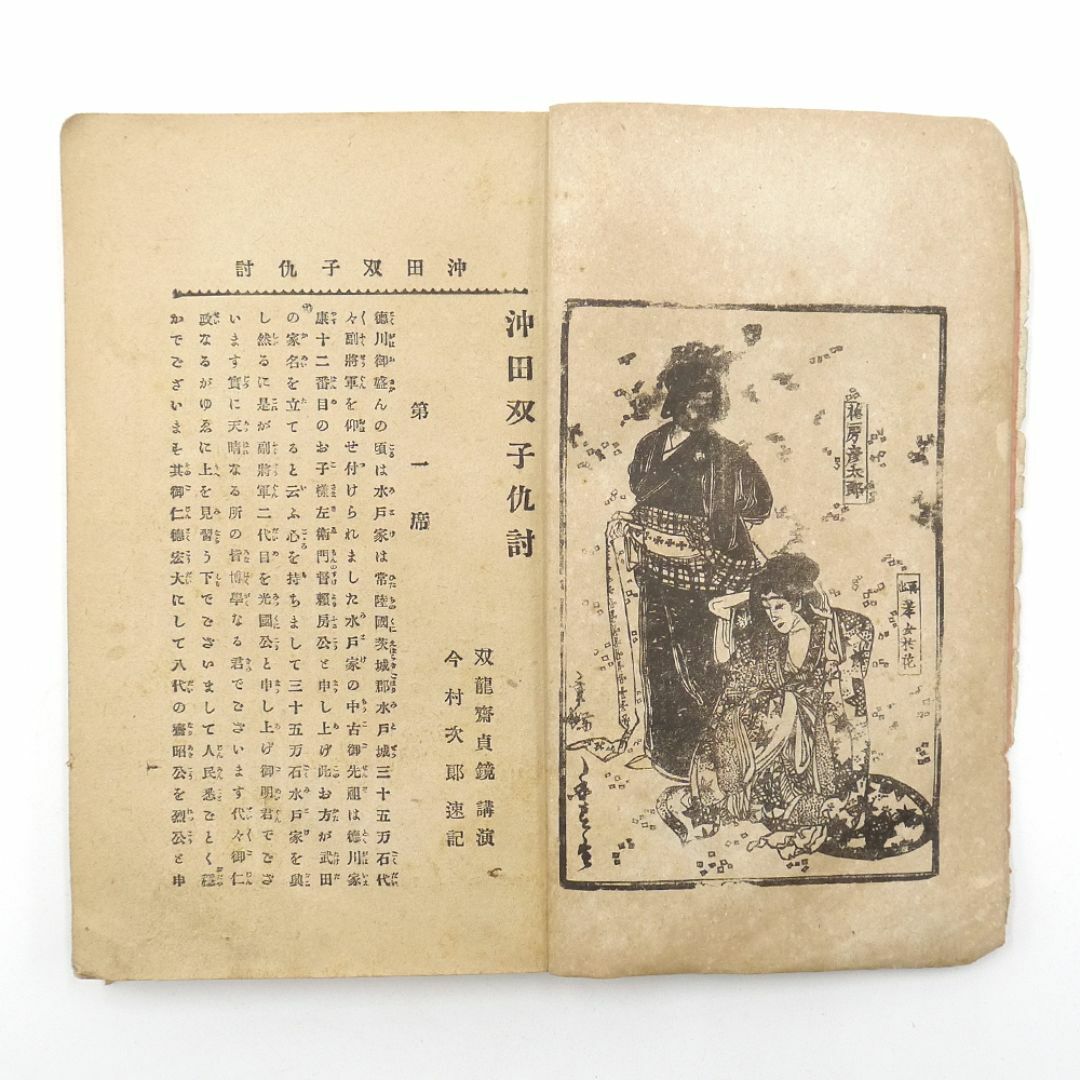 沖田双子仇討
沖田双子仇討
双龍齋貞鏡 講演
今村次郎 速記
第一席
德川御盛んの頃は水戸家は常陸國茨城郡水戸城三十五万石代
々副將軍を仰せ付けられました水戸家の中古御先祖は德川家
康十二番目のお子樣左衛門督賴房公と申し上げ此お方が武田
の家名を立てると云ふ心を持ちまして三十五万石水戸家を興
し然るに是が副將軍二代目を光圀公と申し上げ御明君でござ
います實に天晴なる所の皆博學なる君でございます代々御仁
政なるがゆゑに上を見習う下でございまして人民悉ごとく穩
かでございまそ其御仁德宏大にして八代の齋昭公を烈公と申
彦太郎